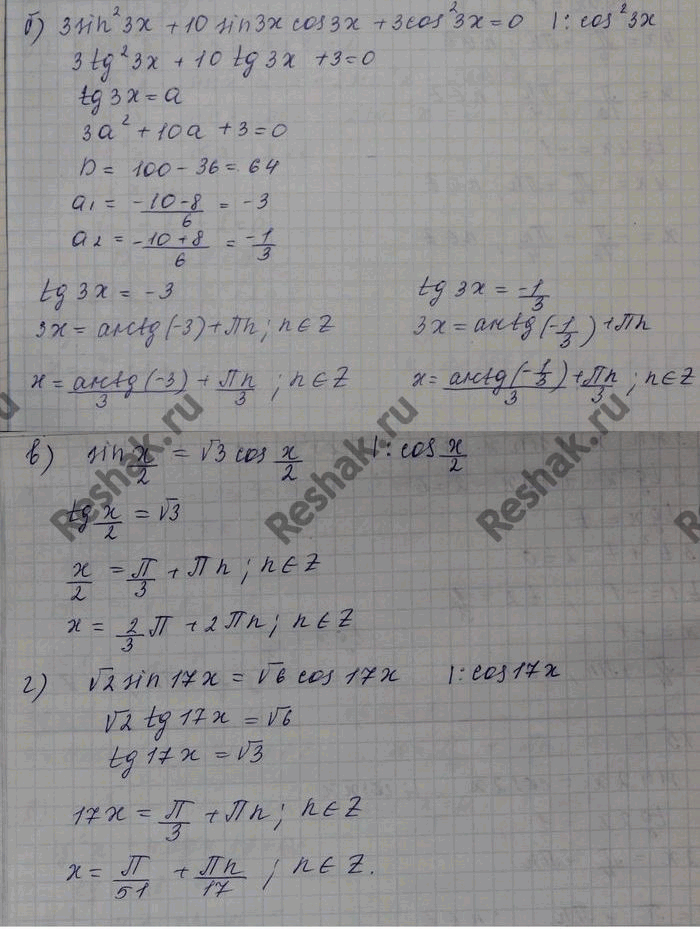 б) 3sin²3x + 10 sin3x cos3x + 3cos²3x = 0 |: cos²3x
3tg²3x + 10 tg3x + 3 = 0
tg3x = a
3a² + 10a + 3 = 0
D = 100 - 36 = 64
a₁ = (-10-8)/6 = -3
a₂ = (-10+8)/6 = -1/3
tg3x = -3
tg3x = -1/3
3x = arctg(-3) + Пn; n∈Z
3x = arctg(-1/3) + Пn
x = arctg(-3)/3 + Пn/3; n∈Z
x = arctg(-1/3)/3 + Пn/3; n∈Z
Reshak.ru
Reshak.ru
Reshak.ru
в) sin x/2 = √3 cos x/2 |: cos x/2
tg x/2 = √3
x/2 = П/3 + Пn; n∈Z
x = 2/3 П + 2Пn; n∈Z
г) √2 sin17x = √6 cos17x |: cos17x
√2 tg17x = √6
tg17x = √3
17x = П/3 + Пn; n∈Z
x = П/51 + Пn/17; n∈Z.